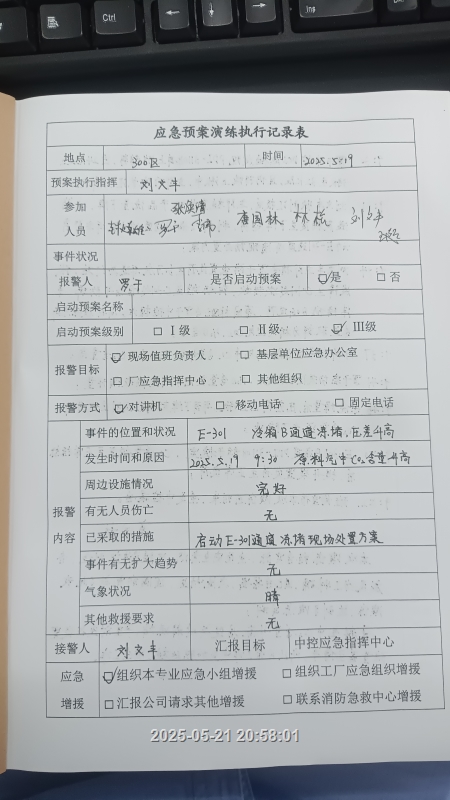 Ctrl
应急预案演练执行记录表
地点 300区 时间 2025.5.19
预案执行指挥 刘文丰
参加人员 唐国林 林栋
事件状况
报警人 罗干 是否启动预案 ☑是 □否
启动预案名称
启动预案级别 □Ⅰ级 □Ⅱ级 ☑Ⅲ级
报警目标 ☑现场值班负责人 □基层单位应急办公室
□厂应急指挥中心 □其他组织
报警方式 ☑对讲机 □移动电话 □固定电话
报警内容
事件的位置和状况 E-301 冷箱B通道冻堵，压差升高
发生时间和原因 2025.5.19 9:30 原料气中CO₂含量升高
周边设施情况 完好
有无人员伤亡 无
已采取的措施 启动E-301通道冻堵现场处置方案
事件有无扩大趋势 无
气象状况 晴
其他救援要求 无
接警人 刘文丰 汇报目标 中控应急指挥中心
应急增援 ☑组织本专业应急小组增援 □组织工厂应急组织增援
□汇报公司请求其他增援 □联系消防急救中心增援
2025-05-21 20:58:01